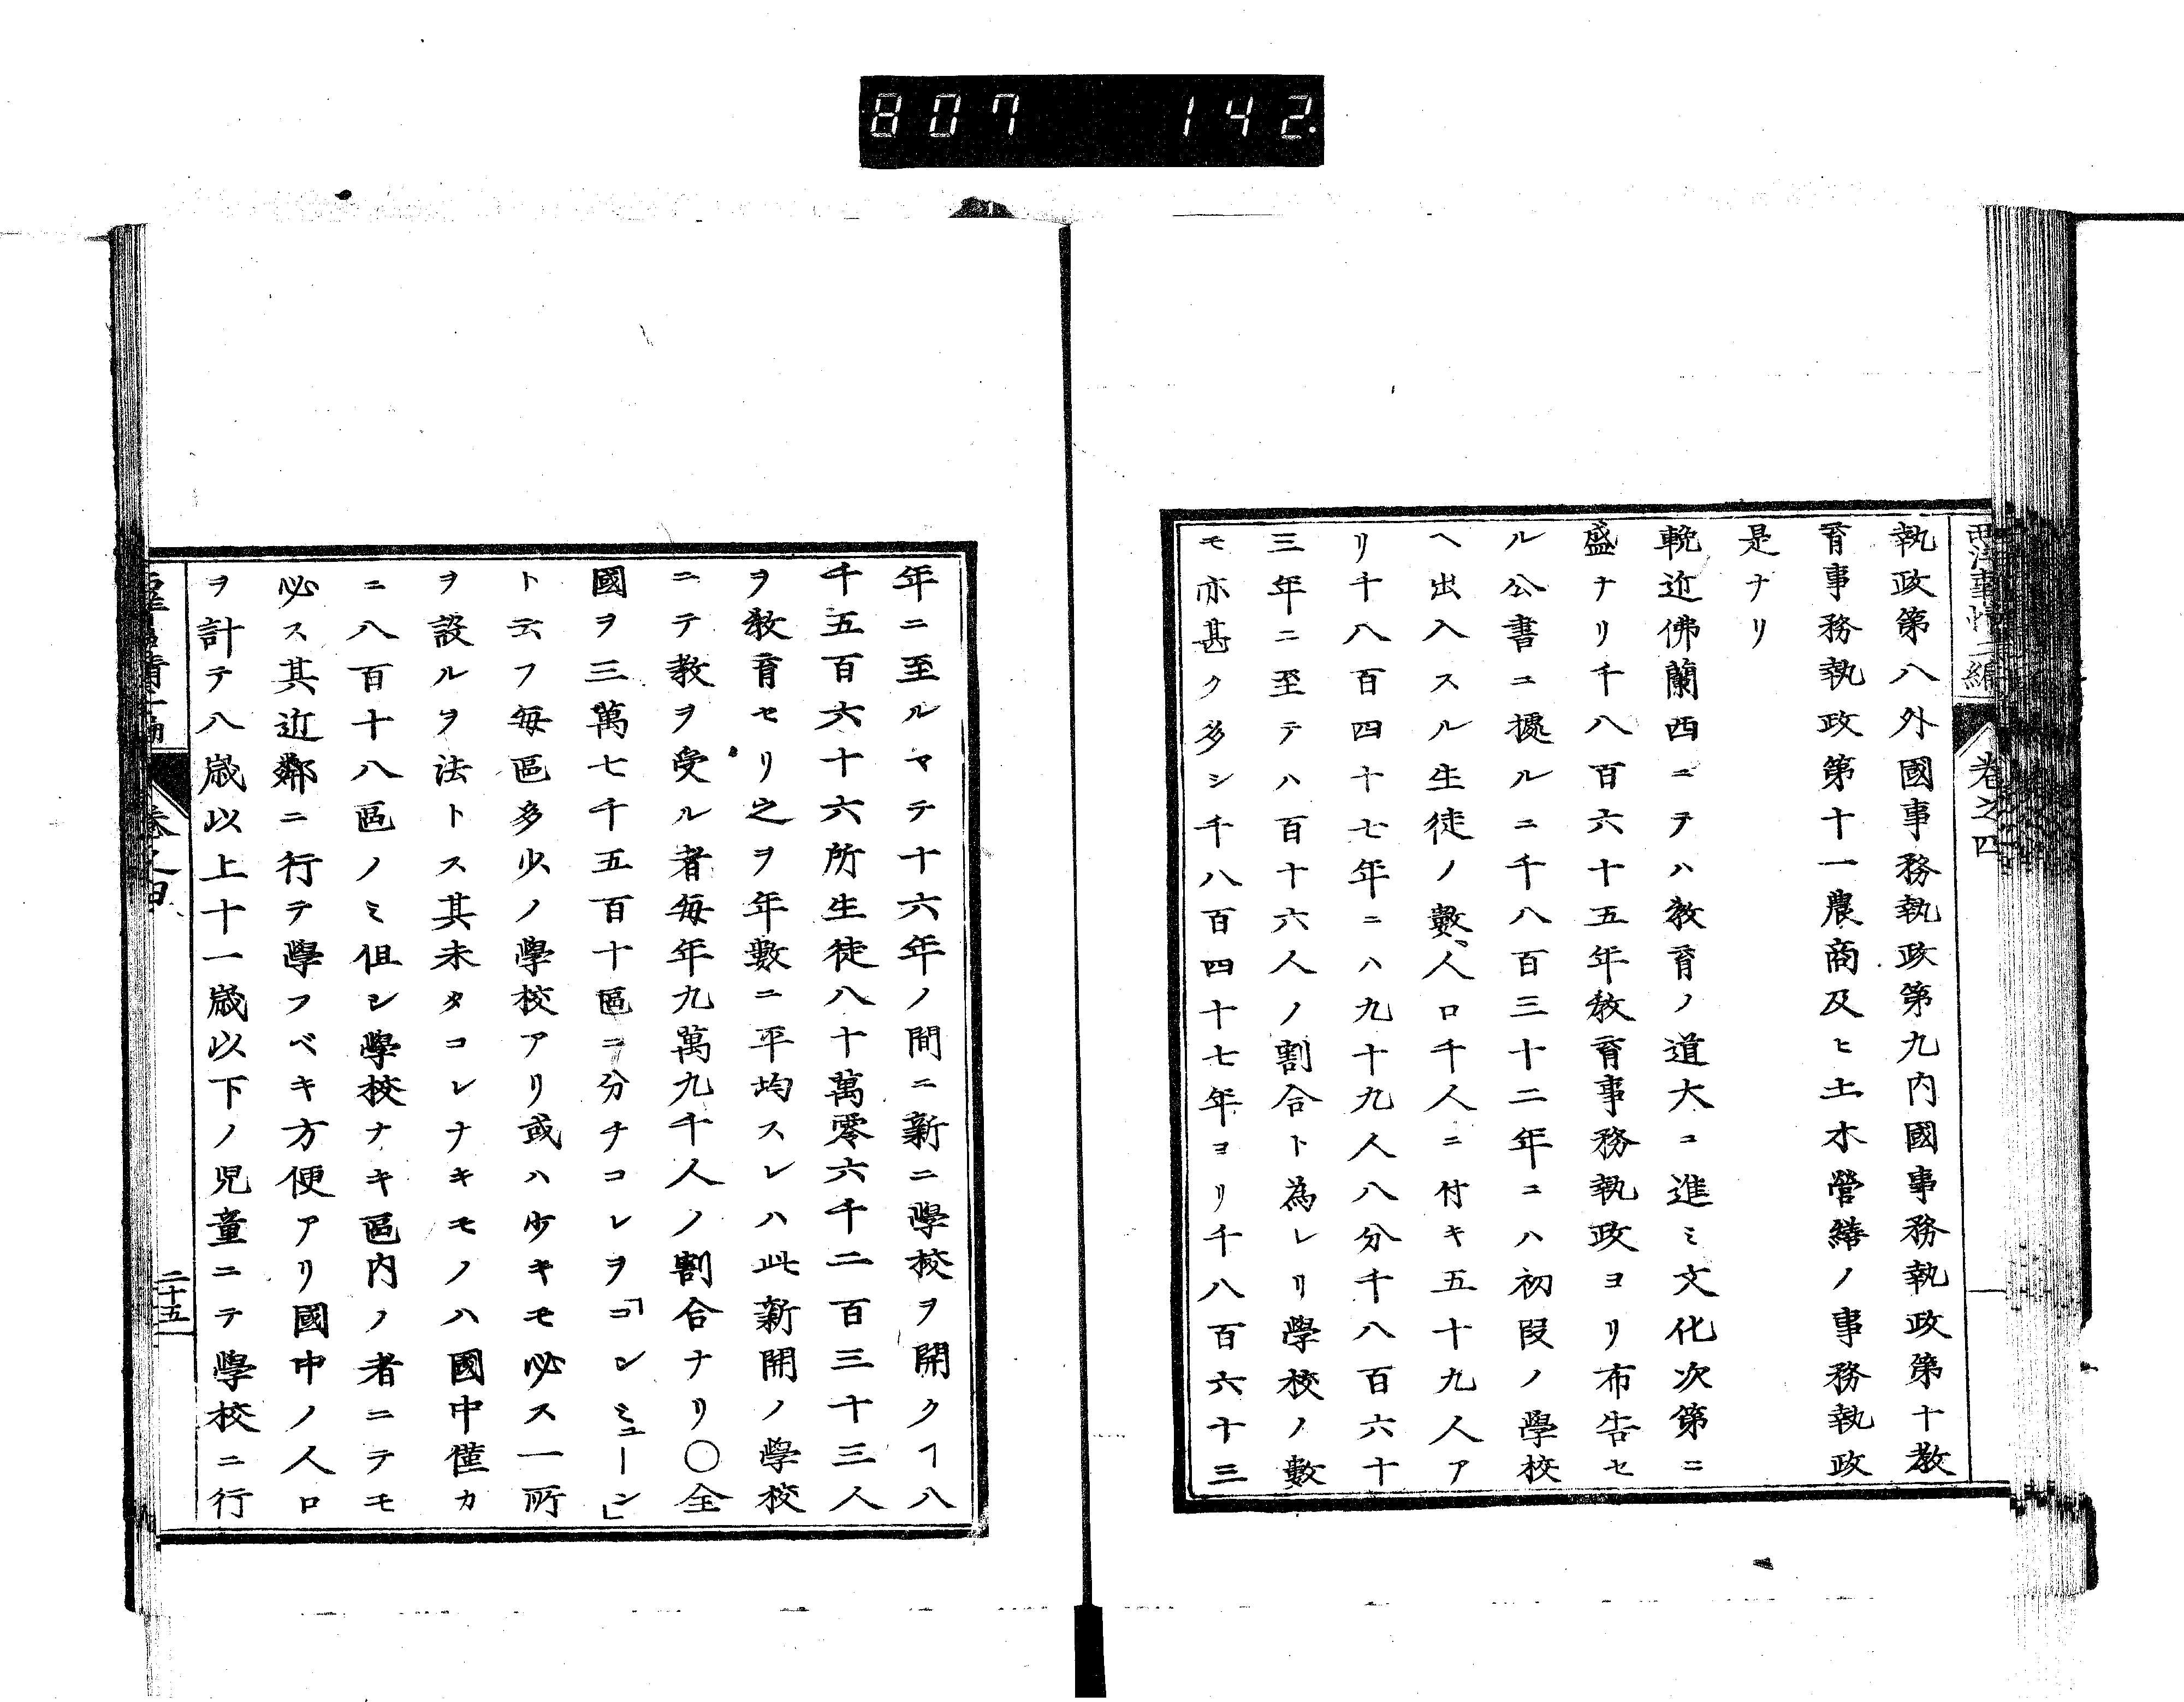 807 142
西洋事情二編 卷之四
執政第八外國事務執政第九內國事務執政第十教
育事務執政第十一農商及ヒ土木營繕ノ事務執政
是ナリ
輓近佛蘭西ニヲハ教育ノ道大ニ進ミ文化次第ニ
盛ナリ千八百六十五年教育事務執政ヨリ布告セ
ル公書ニ據ルニ千八百三十二年ニハ初段ノ學校
ヘ出入スル生徒ノ數人口千人ニ付キ五十九人ア
リ千八百四十七年ニハ九十九人八分千八百六十
三年ニ至テハ百十六人ノ割合ト為レリ學校ノ數
モ亦甚ク多シ千八百四十七年ヨリ千八百六十三
年ニ至ルマテ十六年ノ間ニ新ニ學校ヲ開クヿ八
千五百六十六所生徒八十萬零六千二百三十三人
ヲ教育セリ之ヲ年數ニ平均スレハ此新開ノ學校
ニテ教ヲ受ル者每年九萬九千人ノ割合ナリ〇全
國ヲ三萬七千五百十區ニ分チコレヲ「コンミューン」
ト云フ每區多少ノ學校アリ或ハ少キモ必ス一所
ヲ設ルヲ法トス其未タコレナキモノハ國中僅カ
ニ八百十八區ノミ但シ學校ナキ區內ノ者ニテモ
必ス其近鄰ニ行テ學フベキ方便アリ國中ノ人口
ヲ計テ八歲以上十一歲以下ノ児童ニテ學校ニ行
二十五